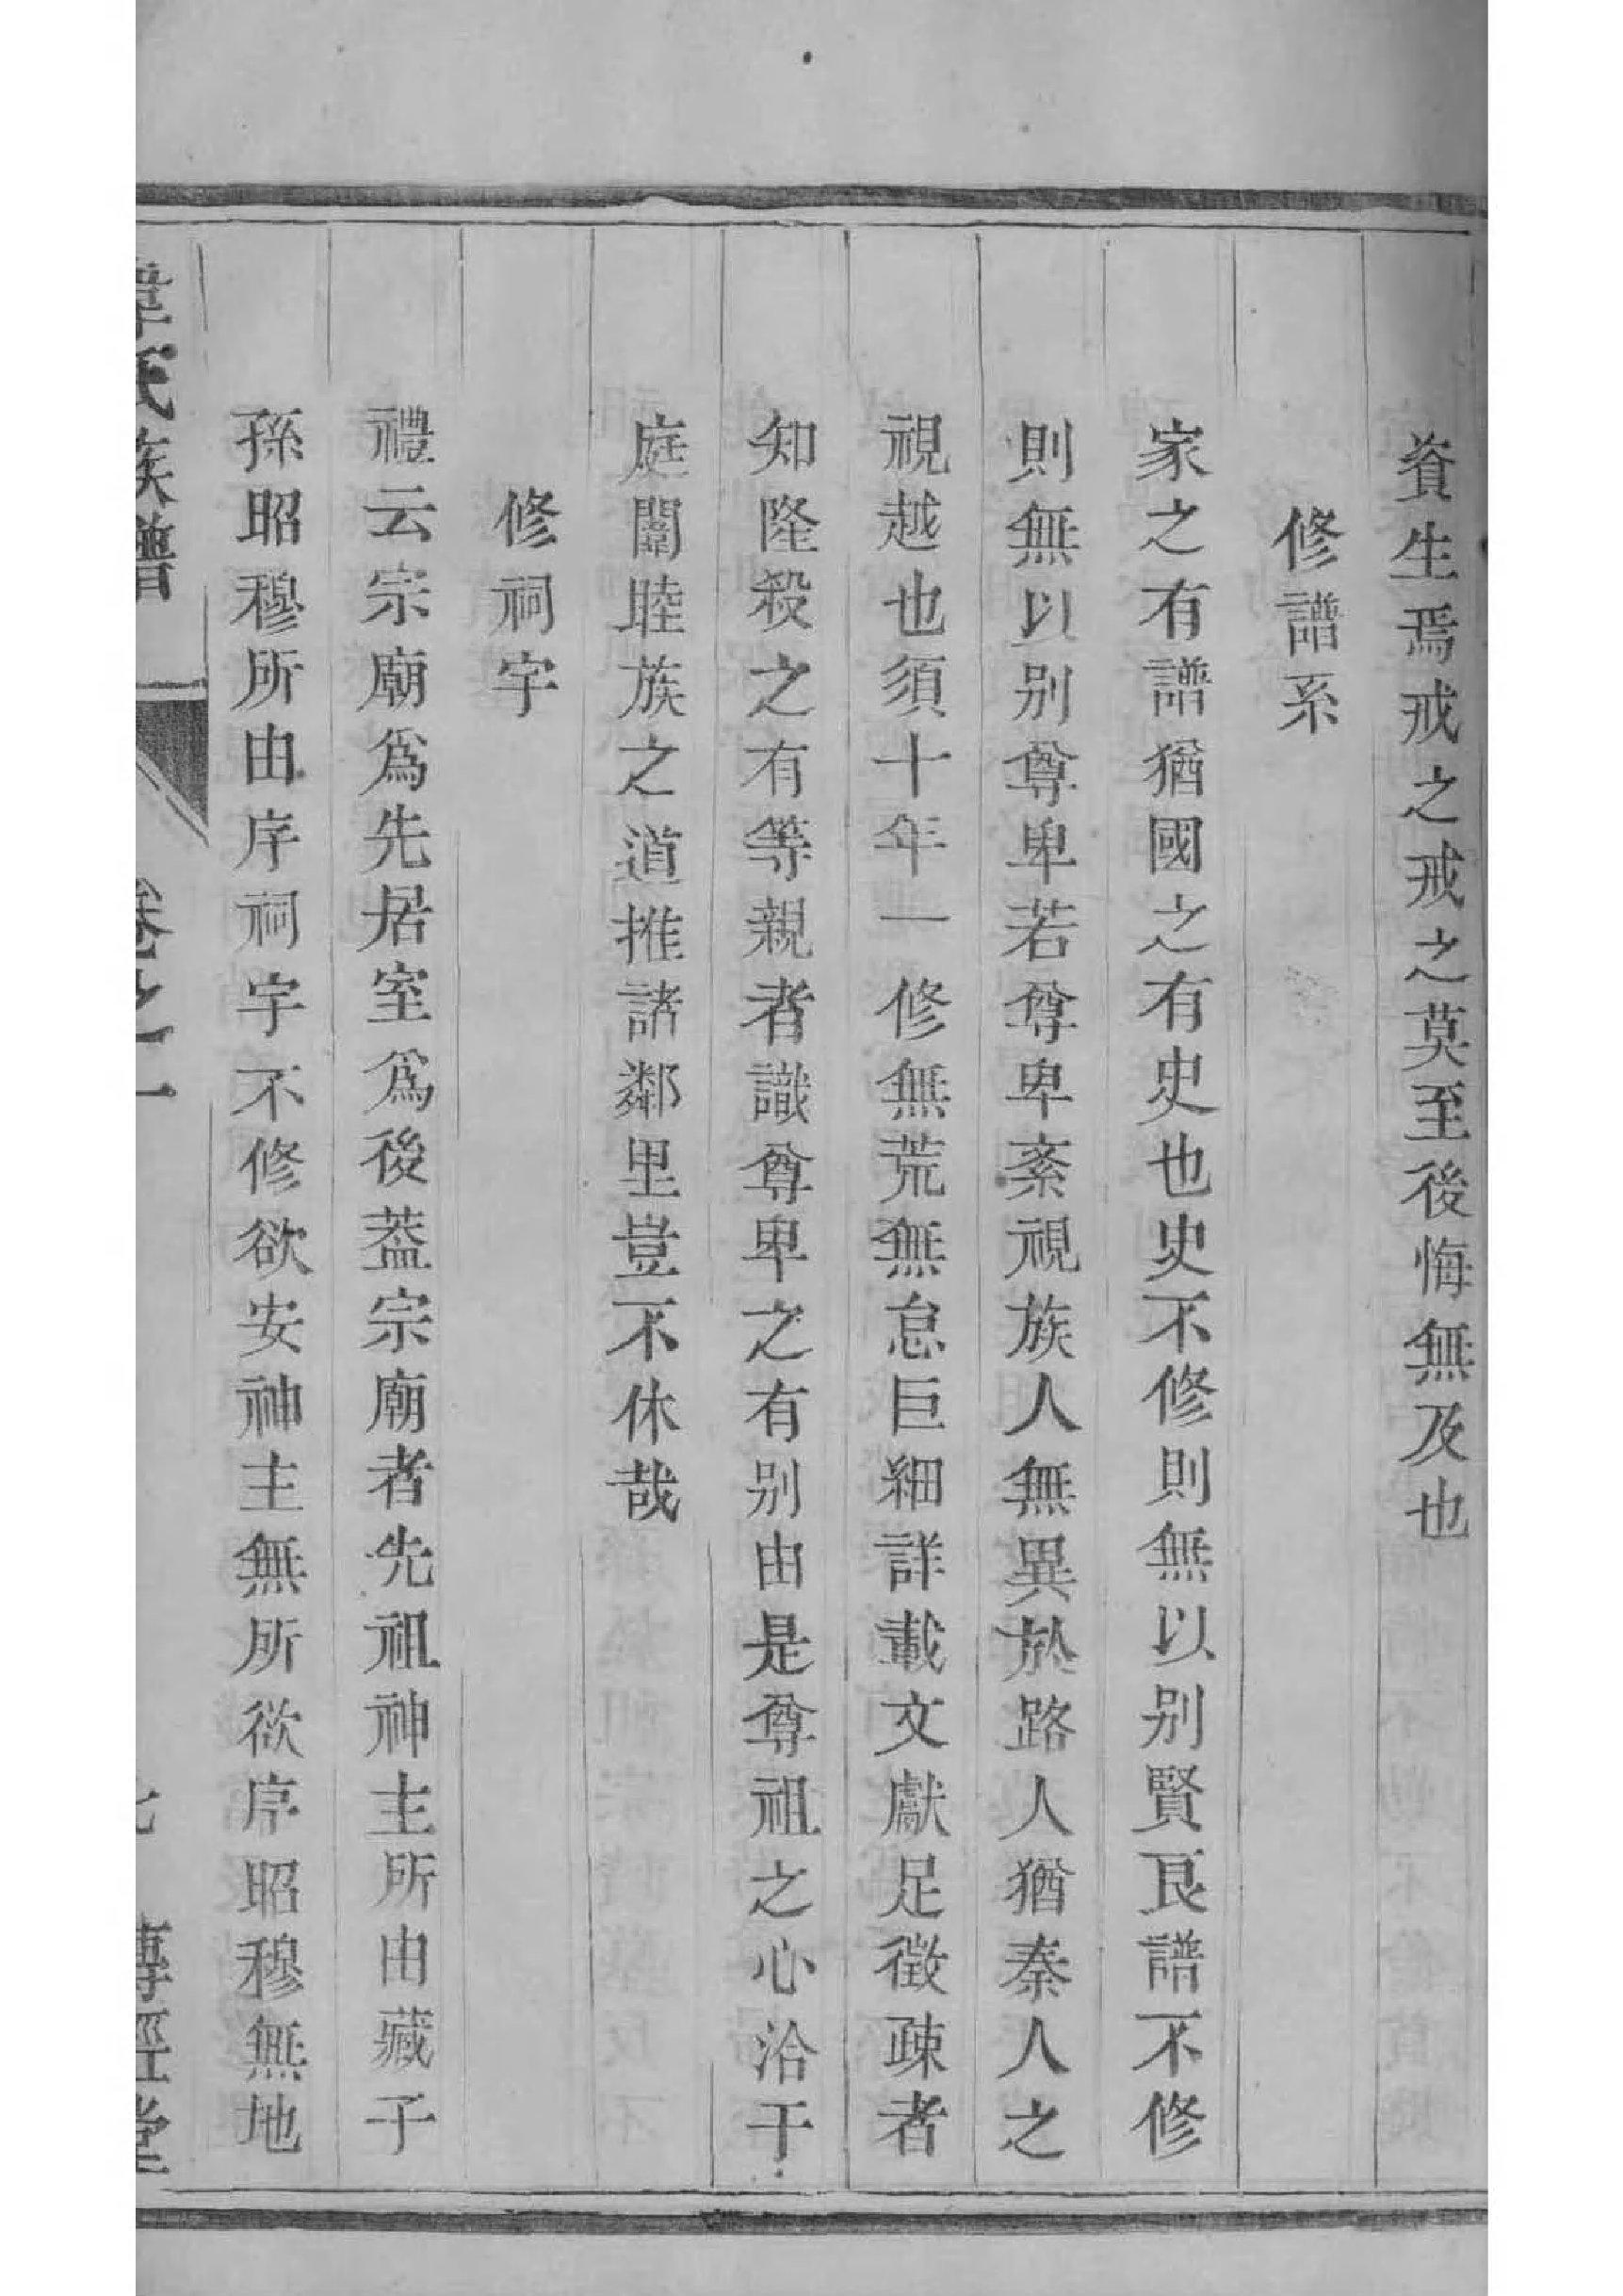 資生焉戒之戒之莫至後悔無及也
修譜系
家之有譜猶國之有史也史不修則無以别賢良譜不修
則無以别尊卑若尊卑紊視族人無異於路人猶秦人之
視越也須十年一修無荒無怠巨細詳載文獻足徵疎者
知隆殺之有等親者識尊卑之有别由是尊祖之心洽于
庭闈睦族之道推諸鄰里豈不休哉
修祠宇
禮云宗廟爲先居室爲後蓋宗廟者先祖神主所由藏子
孫昭穆所由序祠宇不修欲安神主無所欲序昭穆無地
韋氏族譜 卷之一 七 傳經堂